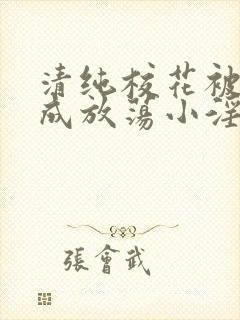 清纯校花被
成放荡小淫
張會武